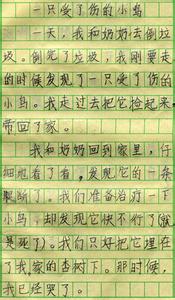 一只受了伤的小鸟
一天，我和奶奶去倒垃
圾。倒完了垃圾，我刚要走
的时候发现了一只受了伤的
小鸟。我走过去把它捡起来，
带回了家。
我和奶奶回到家里，仔
细地看了看，发现它的一条
腿断了。我们准备治疗一下
小鸟，却发现它快不行了(就
是死了)。我们只好把它埋在
了我家的杏树下。那时候，
我已经哭了。